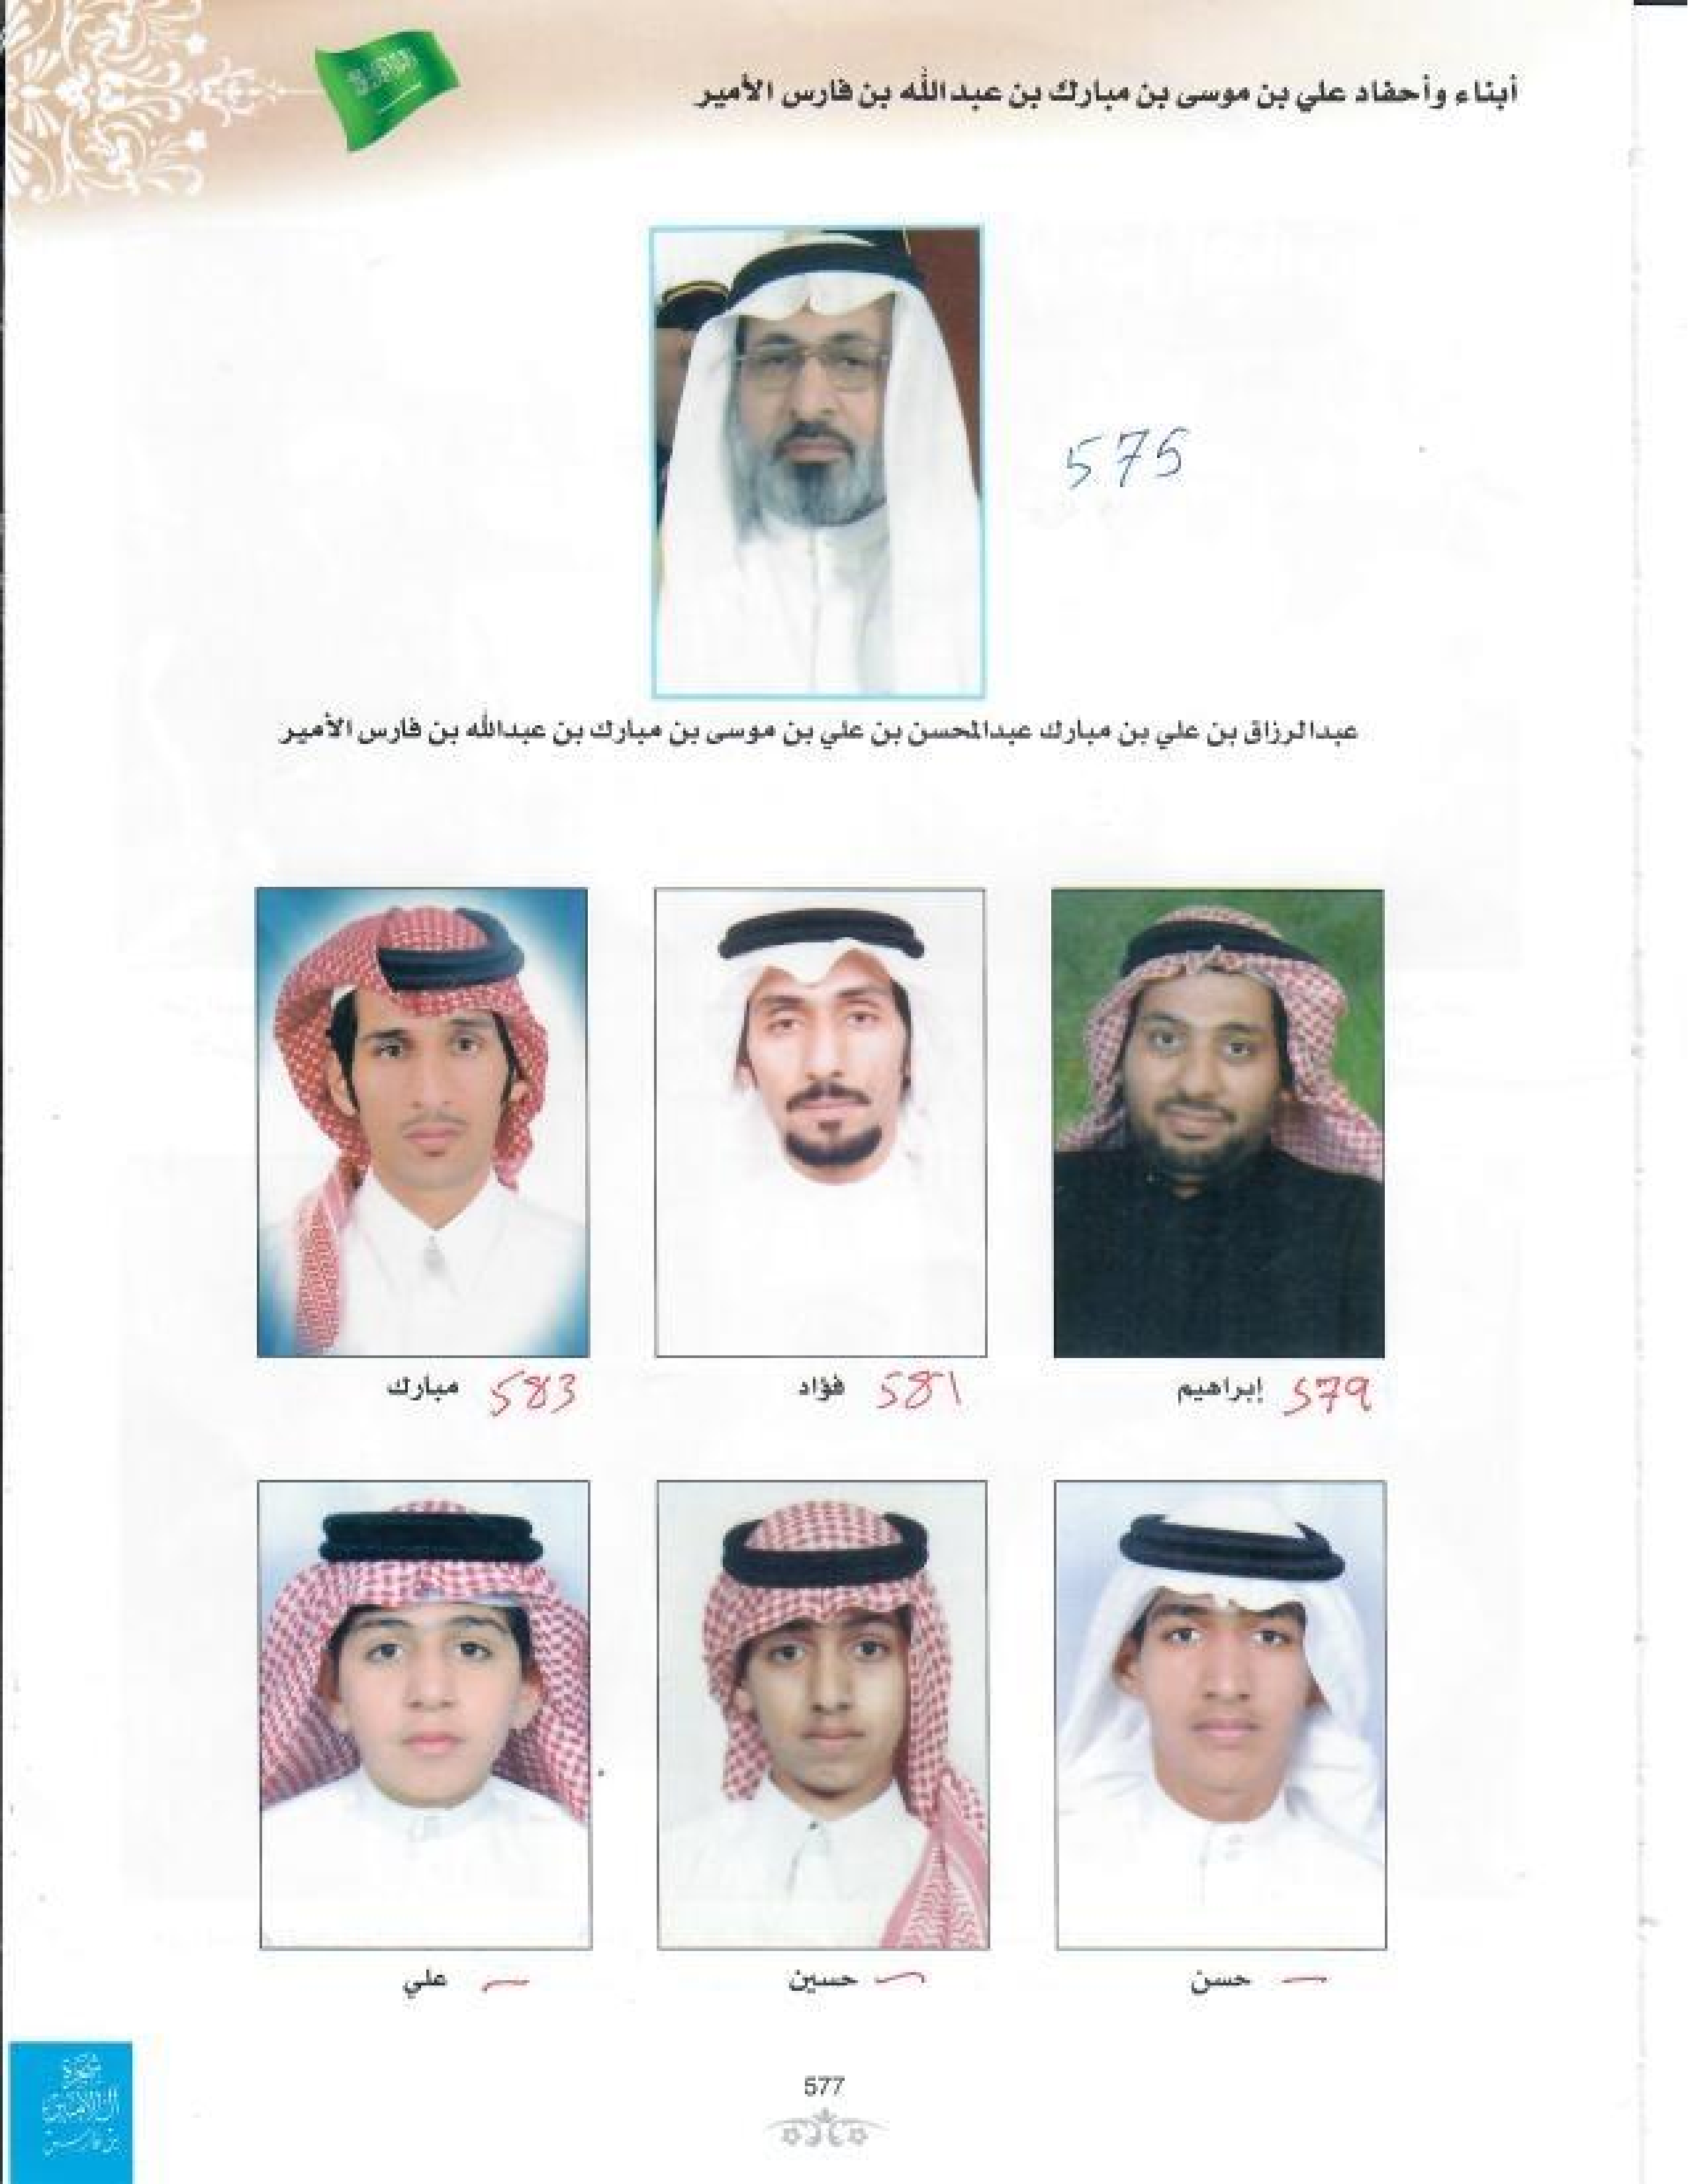 أبناء وأحفاد علي بن موسى بن مبارك بن عبدالله بن فارس الأمير
575
عبدالرزاق بن علي بن مبارك عبدالمحسن بن علي بن موسى بن مبارك بن عبدالله بن فارس الأمير
579 إبراهيم
581 فؤاد
583 مبارك
حسن
حسين
علي
577
شجرة
بن فارس